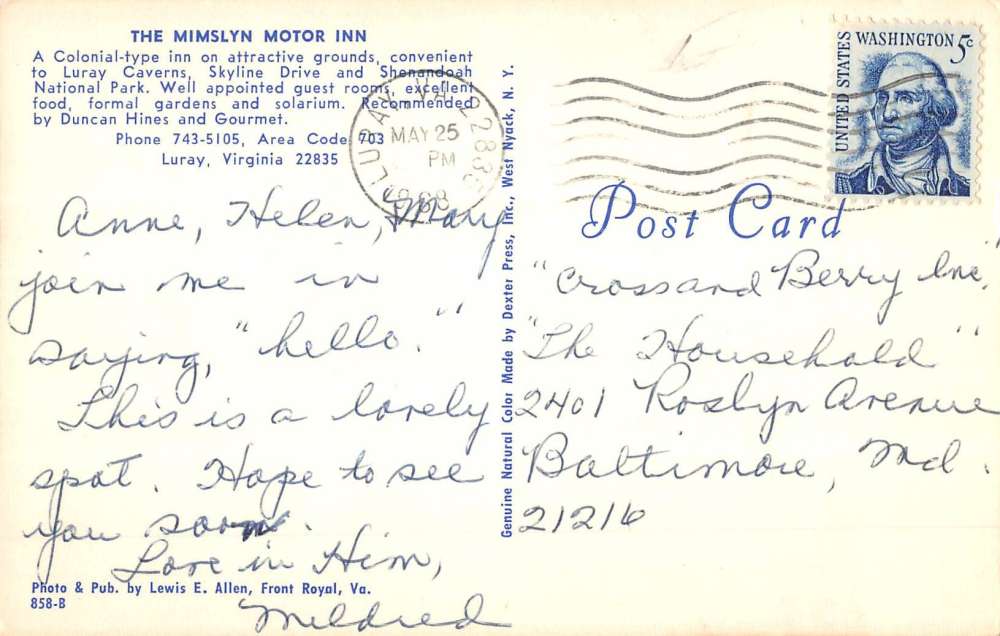 THE MIMSLYN MOTOR INN
A Colonial-type inn on attractive grounds, convenient
to Luray Caverns, Skyline Drive and Shenandoah
National Park. Well appointed guest rooms, excellent
food, formal gardens and solarium. Recommended
by Duncan Hines and Gourmet.
Phone 743-5105, Area Code 703
Luray, Virginia 22835
LURAY, VA. 22835
MAY 25
PM
1968
UNITED STATES
WASHINGTON 5c
Post Card
Anne, Helen, Mary
join me in
saying, "hello."
This is a lovely
spot. Hope to see
you soon.
Love in Him,
Mildred
Genuine Natural Color Made by Dexter Press, Inc., West Nyack, N. Y.
"Crossand Berry Inc."
"The Household"
2401 Roslyn Avenue
Baltimore, Md.
21216
Photo & Pub. by Lewis E. Allen, Front Royal, Va.
858-B